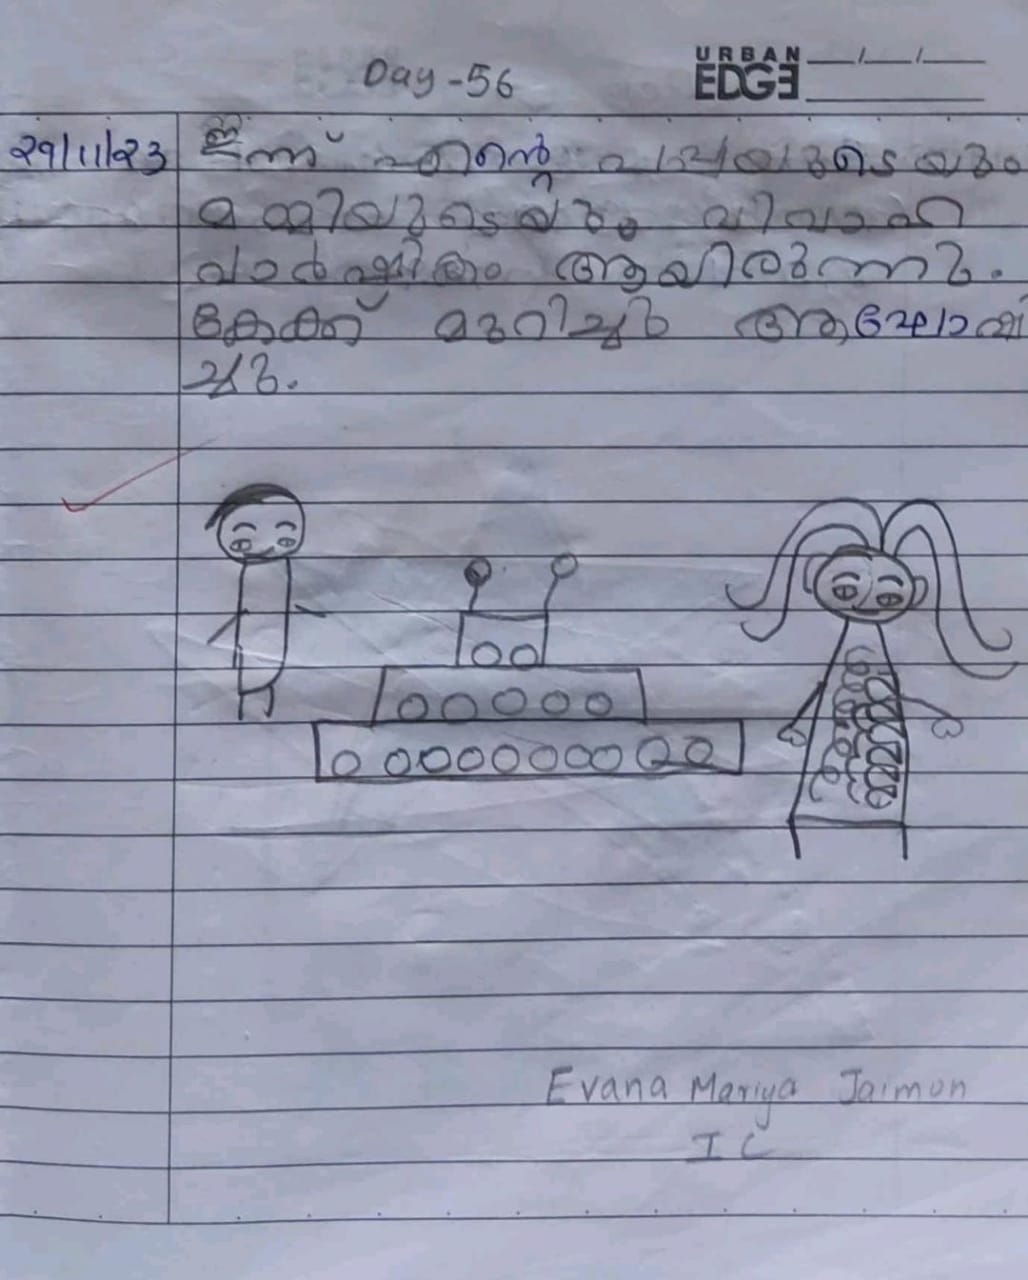 Day-56
URBAN
EDGE
29/11/23
ഇന്ന് എന്റെ പപ്പയുടെയും
മമ്മിയുടെയും വിവാഹ
വാർഷികം ആയിരുന്നു.
കേക്ക് മുറിച്ചു ആഘോഷി
ച്ചു.
Evana Mariya Jaimon
I C